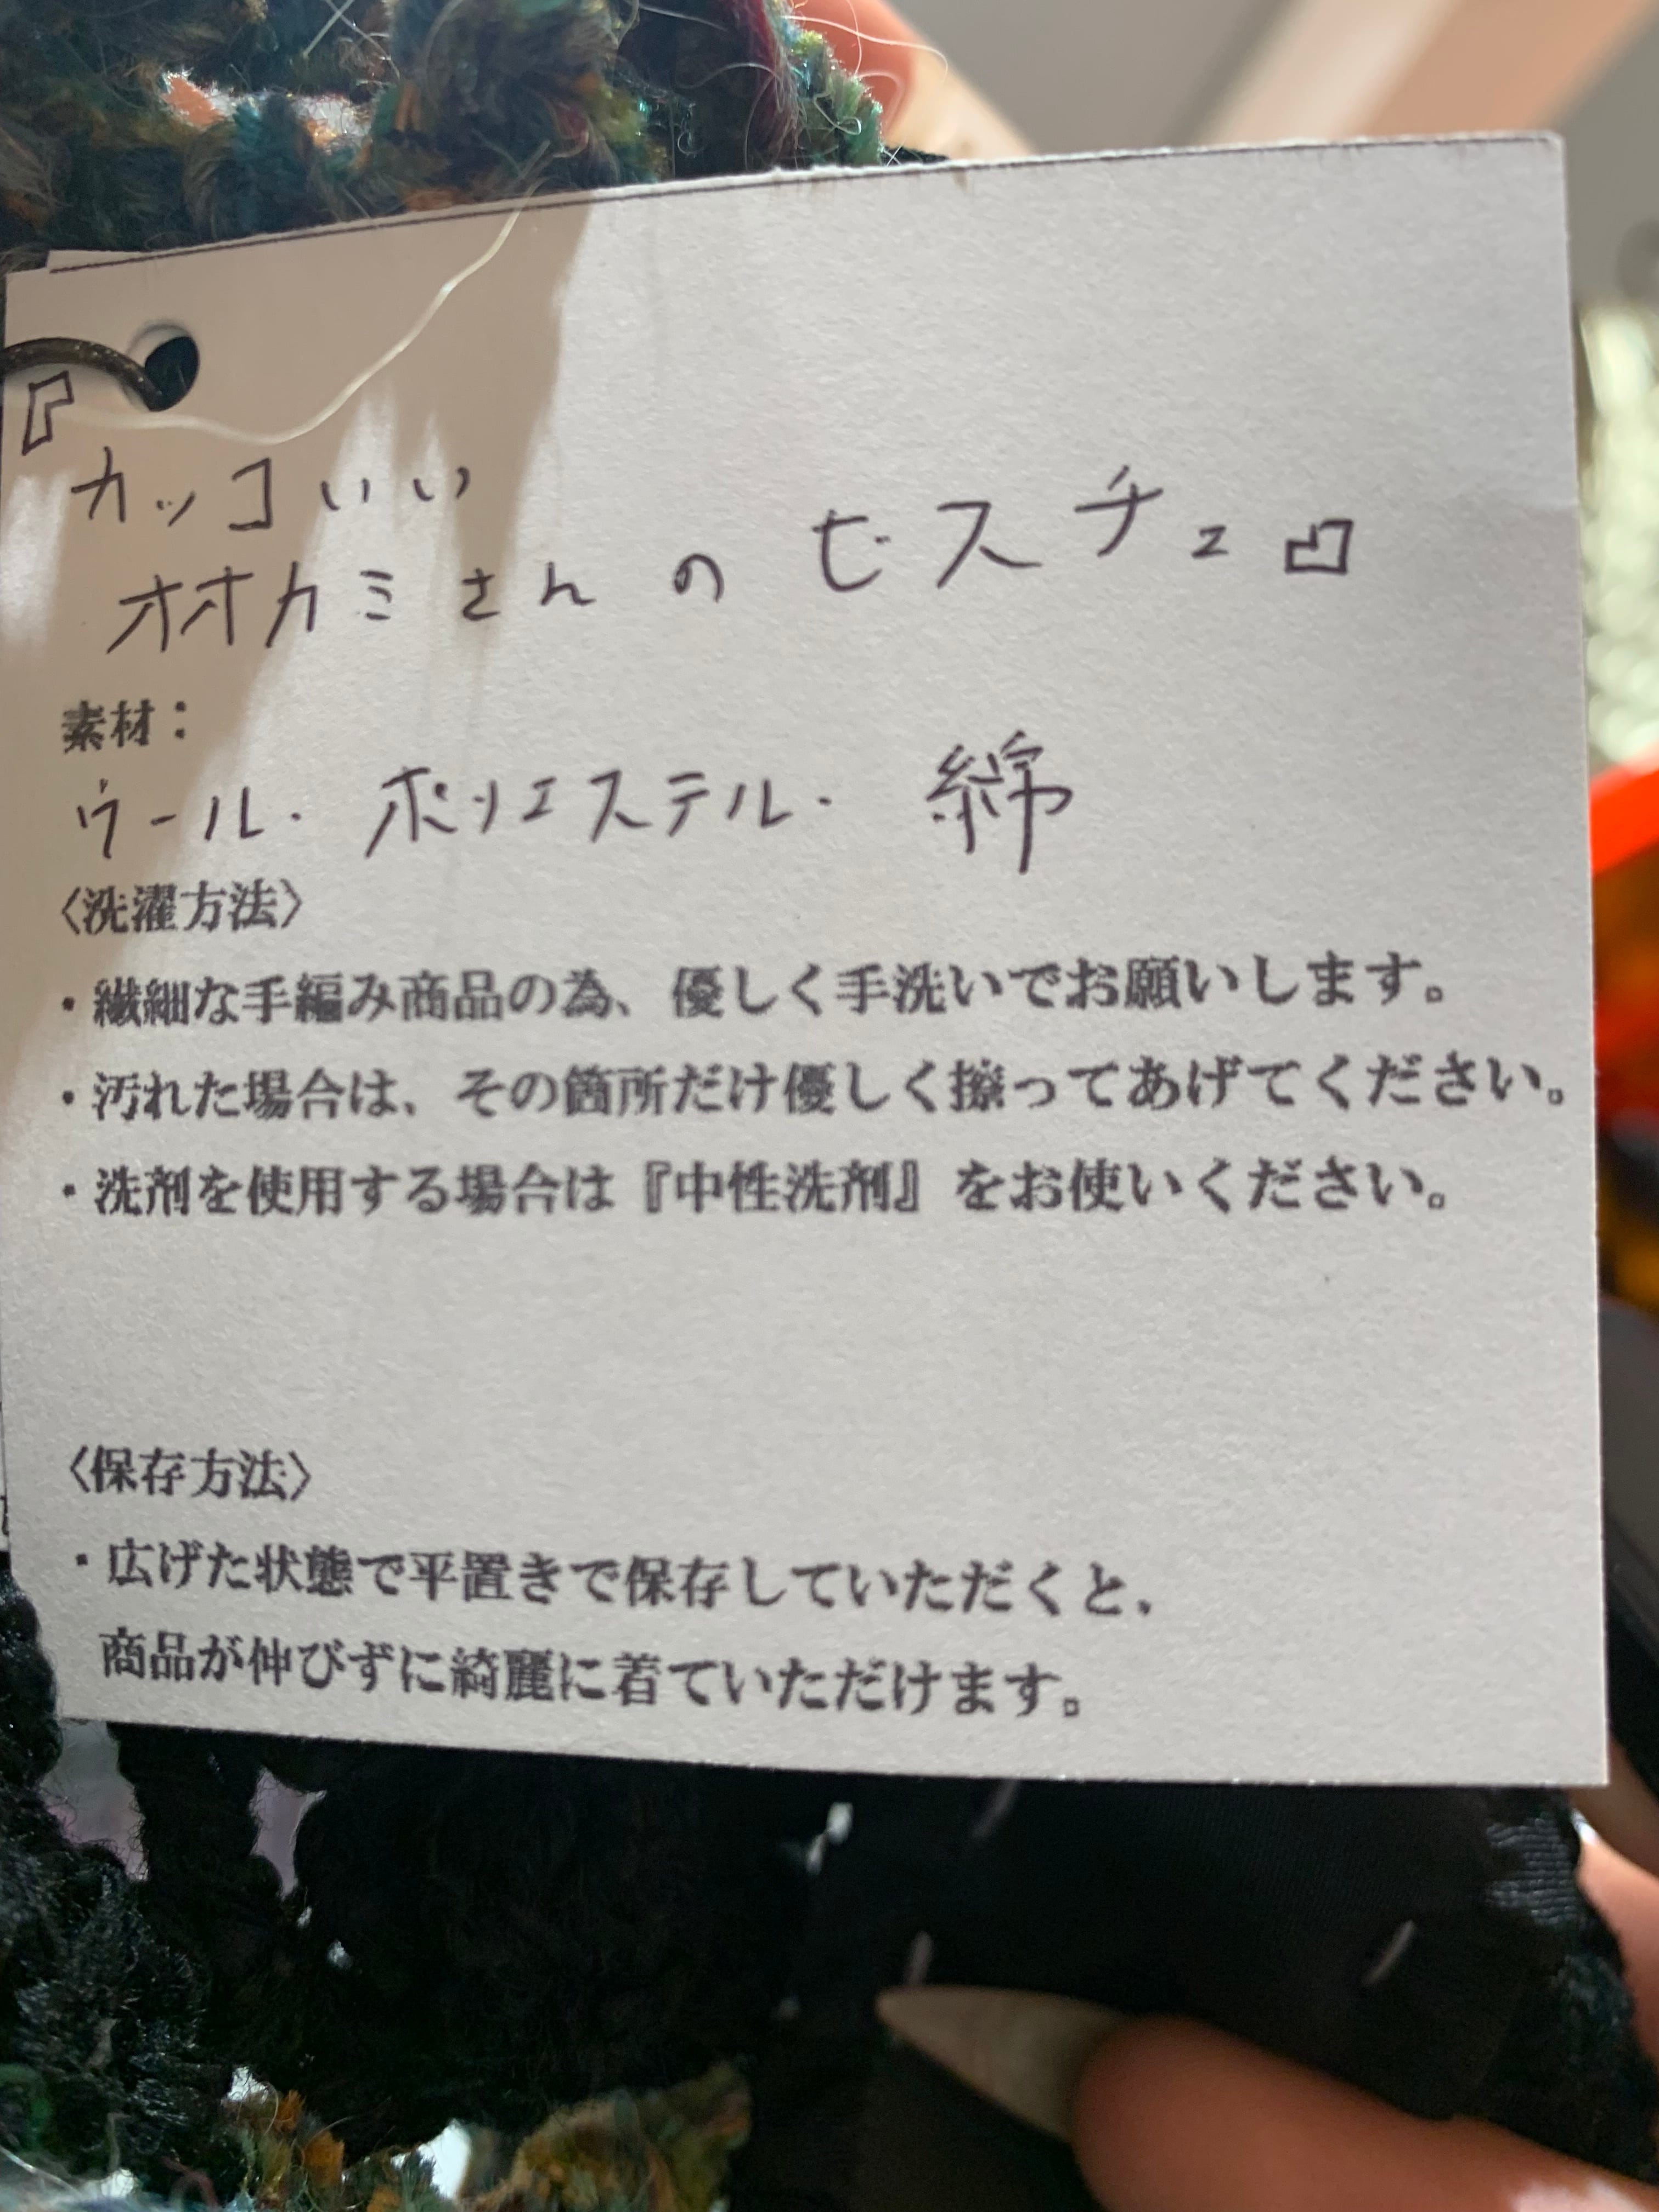 『カッコいい
オオカミさんのビスチェ』
素材：
ウール・ポリエステル・綿
〈洗濯方法〉
・繊細な手編み商品の為、優しく手洗いでお願いします。
・汚れた場合は、その箇所だけ優しく擦ってあげてください。
・洗剤を使用する場合は『中性洗剤』をお使いください。
〈保存方法〉
・広げた状態で平置きで保存していただくと、
商品が伸びずに綺麗に着ていただけます。